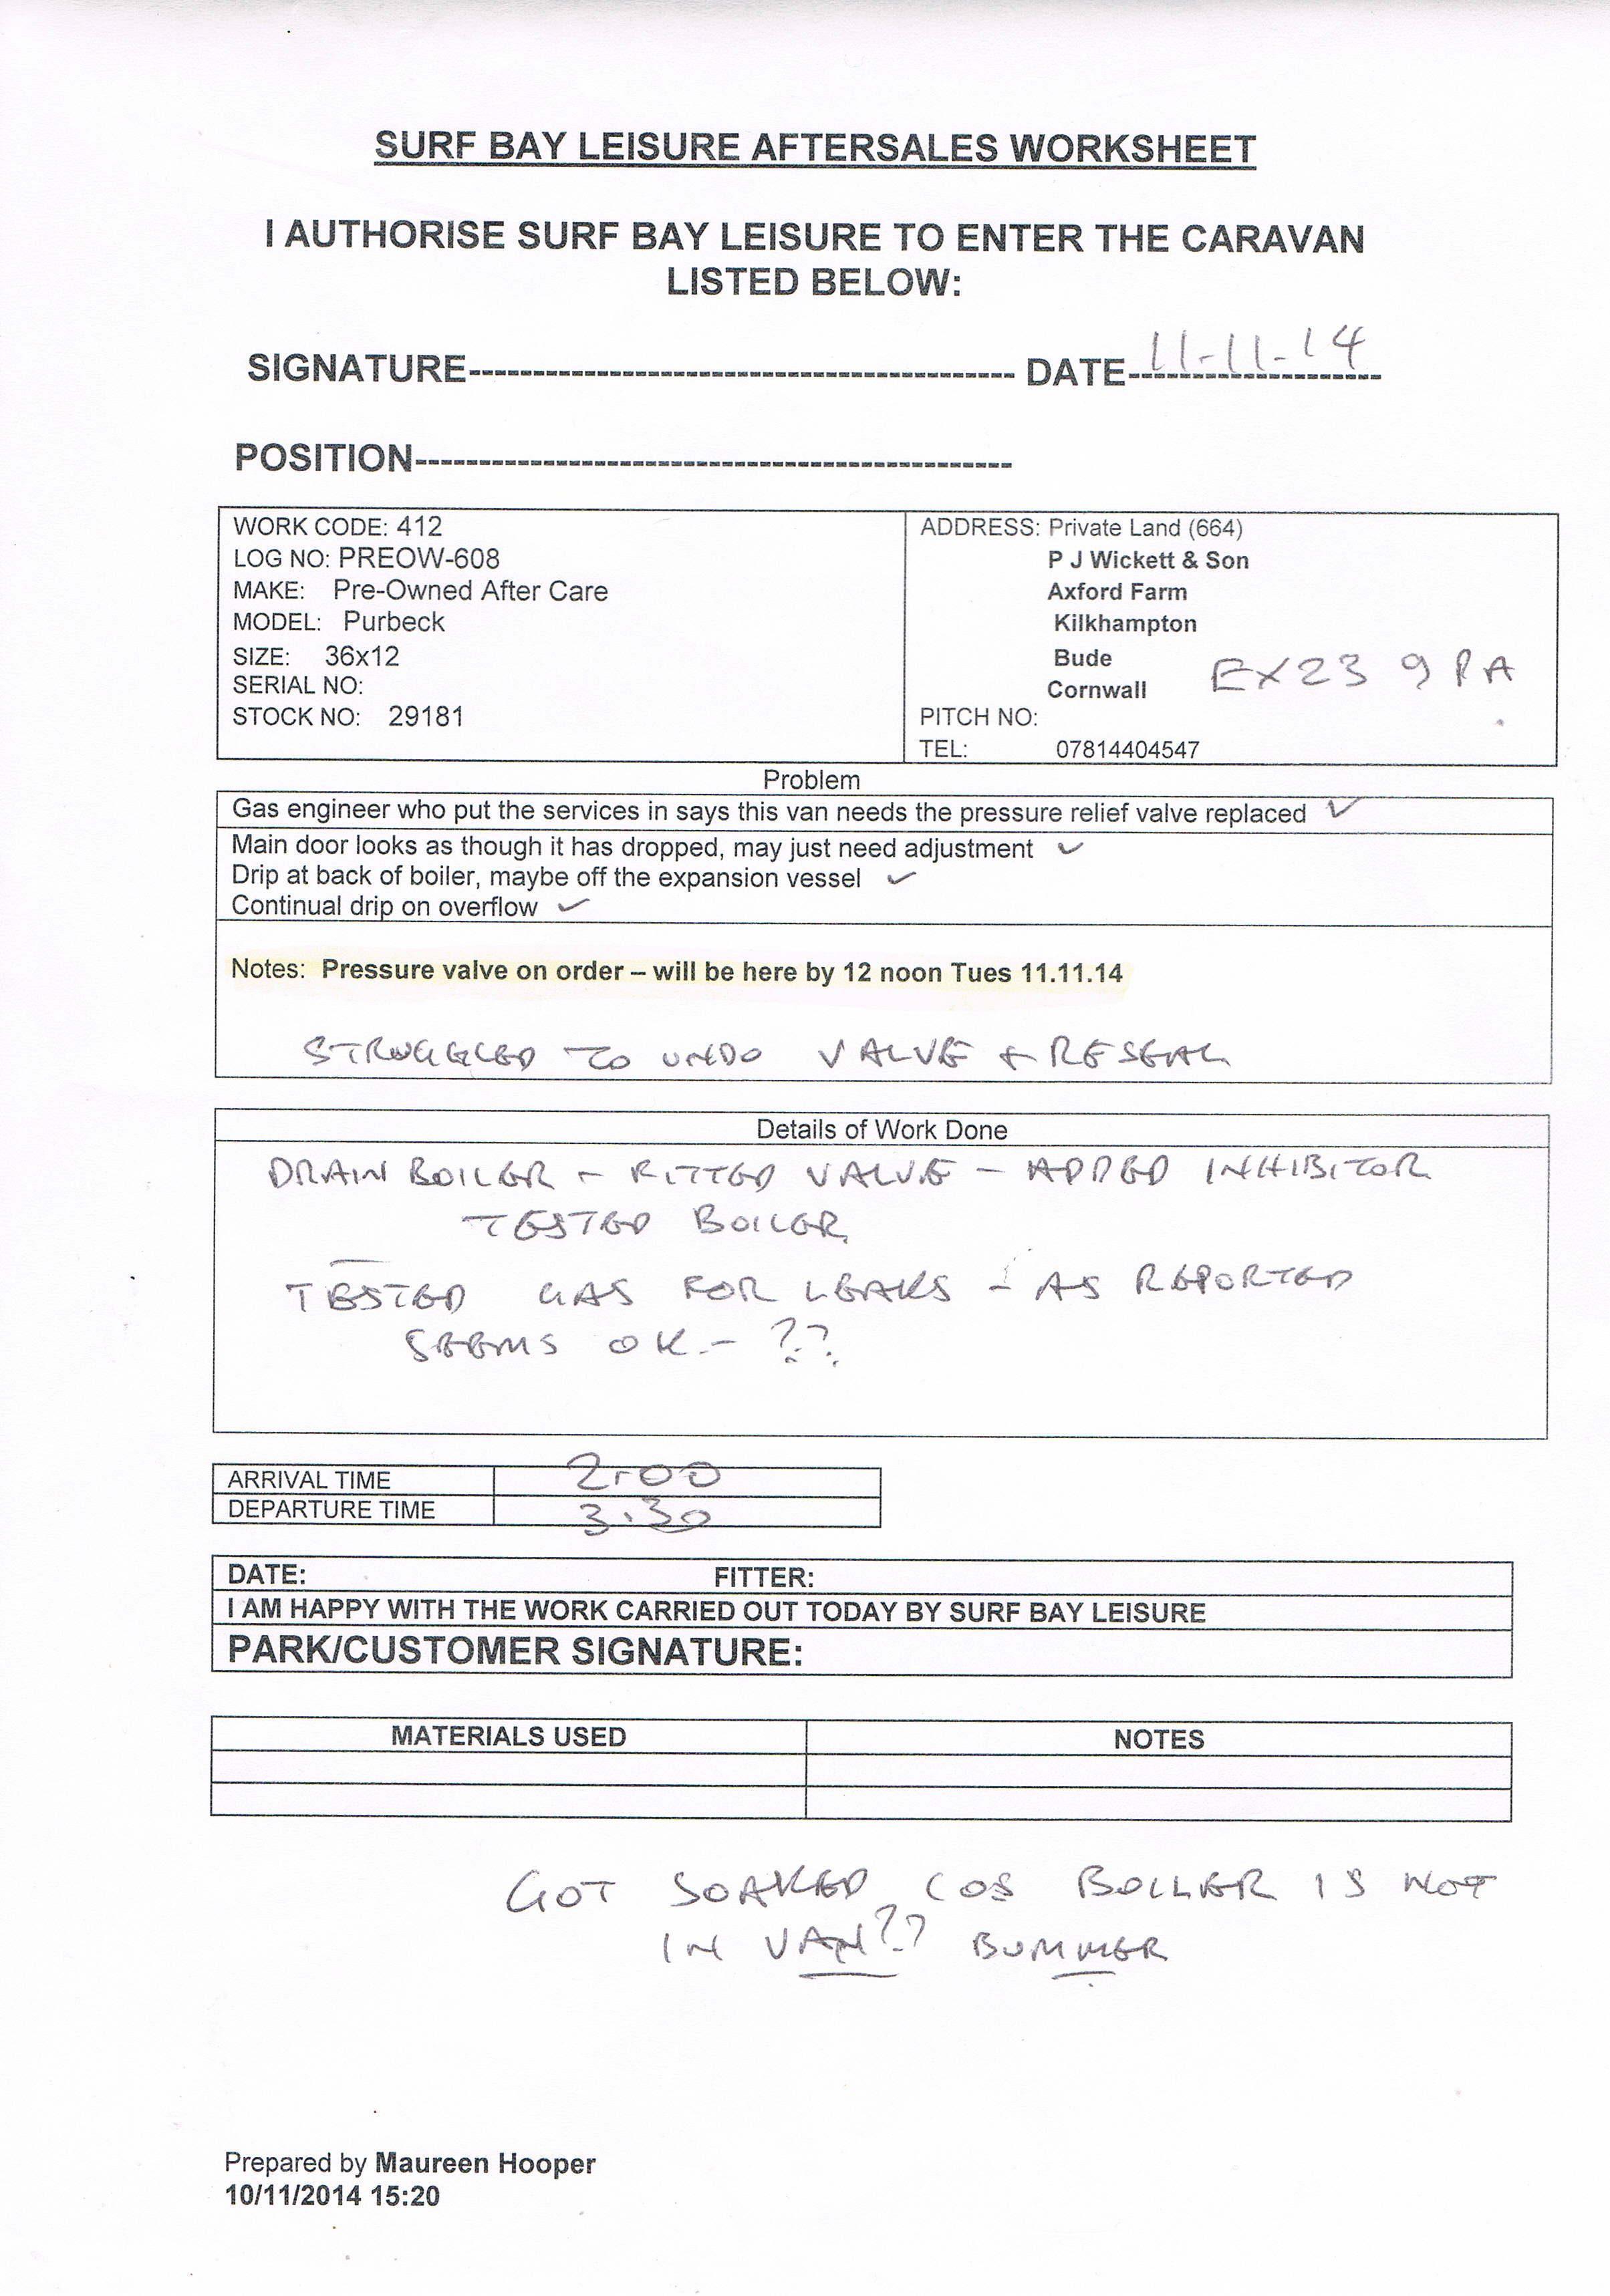 SURF BAY LEISURE AFTERSALES WORKSHEET
I AUTHORISE SURF BAY LEISURE TO ENTER THE CARAVAN
LISTED BELOW:
SIGNATURE------------------------------------------ DATE 11-11-14
POSITION----------------------------------------------
WORK CODE: 412
LOG NO: PREOW-608
MAKE: Pre-Owned After Care
MODEL: Purbeck
SIZE: 36x12
SERIAL NO:
STOCK NO: 29181
ADDRESS: Private Land (664)
P J Wickett & Son
Axford Farm
Kilkhampton
Bude
Cornwall EX23 9PA
PITCH NO:
TEL: 07814404547
Problem
Gas engineer who put the services in says this van needs the pressure relief valve replaced ✓
Main door looks as though it has dropped, may just need adjustment ✓
Drip at back of boiler, maybe off the expansion vessel ✓
Continual drip on overflow ✓
Notes: Pressure valve on order – will be here by 12 noon Tues 11.11.14
STRUGGLED TO UNDO VALVE + RESEAL
Details of Work Done
DRAIN BOILER - FITTED VALVE - ADDED INHIBITOR
TESTED BOILER
TESTED GAS FOR LEAKS - AS REPORTED
SEEMS OK - ??
ARRIVAL TIME 2.00
DEPARTURE TIME 3.30
DATE: FITTER:
I AM HAPPY WITH THE WORK CARRIED OUT TODAY BY SURF BAY LEISURE
PARK/CUSTOMER SIGNATURE:
MATERIALS USED NOTES
GOT SOAKED COS BOILER IS NOT
IN VAN?? BUMMER
Prepared by Maureen Hooper
10/11/2014 15:20